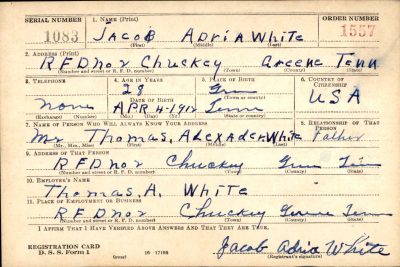 SERIAL NUMBER 1. NAME (Print) ORDER NUMBER
1083 Jacob Adria White 1557
(First) (Middle) (Last)
2. ADDRESS (Print)
R F D No2 Chuckey Greene Tenn
(Number and street or R. F. D. number) (Town) (County) (State)
3. TELEPHONE 4. AGE IN YEARS 5. PLACE OF BIRTH 6. COUNTRY OF CITIZENSHIP
28
DATE OF BIRTH (Town or county)
none APR 4-1912 Tenn USA
(Exchange) (Number) (Mo.) (Day) (Yr.) (State or country)
7. NAME OF PERSON WHO WILL ALWAYS KNOW YOUR ADDRESS 8. RELATIONSHIP OF THAT PERSON
Mr. Thomas, Alexader White Father
(Mr., Mrs., Miss) (First) (Middle) (Last)
9. ADDRESS OF THAT PERSON
R F D No2 Chuckey Tenn
(Number and street or R. F. D. number) (Town) (County) (State)
10. EMPLOYER'S NAME
Thomas, A. White
11. PLACE OF EMPLOYMENT OR BUSINESS
R F D No2 Chuckey Greene Tenn
(Number and street or R. F. D. number) (Town) (County) (State)
I AFFIRM THAT I HAVE VERIFIED ABOVE ANSWERS AND THAT THEY ARE TRUE.
REGISTRATION CARD
D. S. S. Form 1 16-17105 Jacob Adria White
(over) (Registrant's signature)